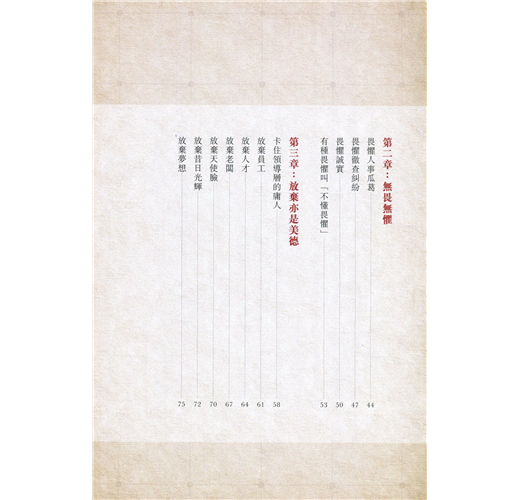 第二章：無畏無懼
畏懼人事瓜葛 44
畏懼徹查糾紛 47
畏懼誠實 50
有種畏懼叫「不懂畏懼」 53
第三章：放棄亦是美德
卡住領導層的庸人 58
放棄員工 61
放棄人才 64
放棄老闆 67
放棄天使臉 70
放棄昔日光輝 72
放棄夢想 75